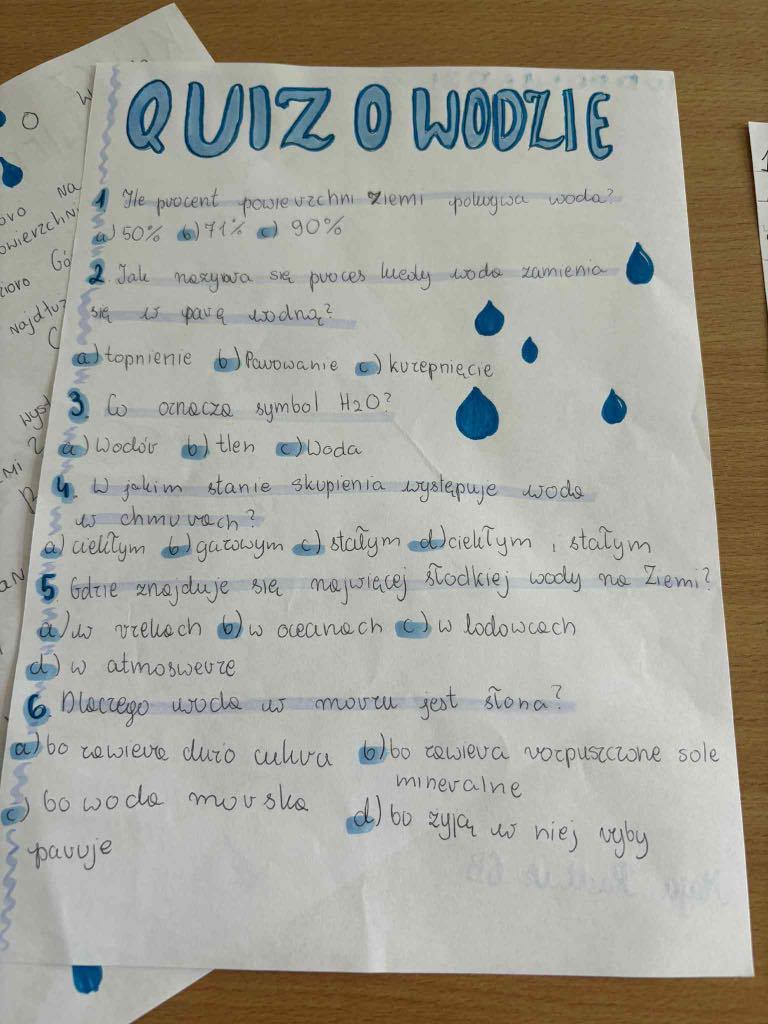 QUIZ O WODZIE
1 Ile procent powierzchni Ziemi pokrywa woda?
a) 50% b) 71% c) 90%
2. Jak nazywa się proces kiedy woda zamienia
się w parę wodną?
a) topnienie b) Parowanie c) krzepnięcie
3. Co oznacza symbol H2O?
a) Wodór b) tlen c) Woda
4. W jakim stanie skupienia występuje woda
w chmurach?
a) ciekłym b) gazowym c) stałym d) ciekłym i stałym
5 Gdzie znajduje się najwięcej słodkiej wody na Ziemi?
a) w rzekach b) w oceanach c) w lodowcach
d) w atmoswerze
6. Dlaczego woda w morzu jest słona?
a) bo zawiera dużo cukru b) bo zawiera rozpuszczone sole
mineralne
c) bo woda morska d) bo żyją w niej ryby
paruje